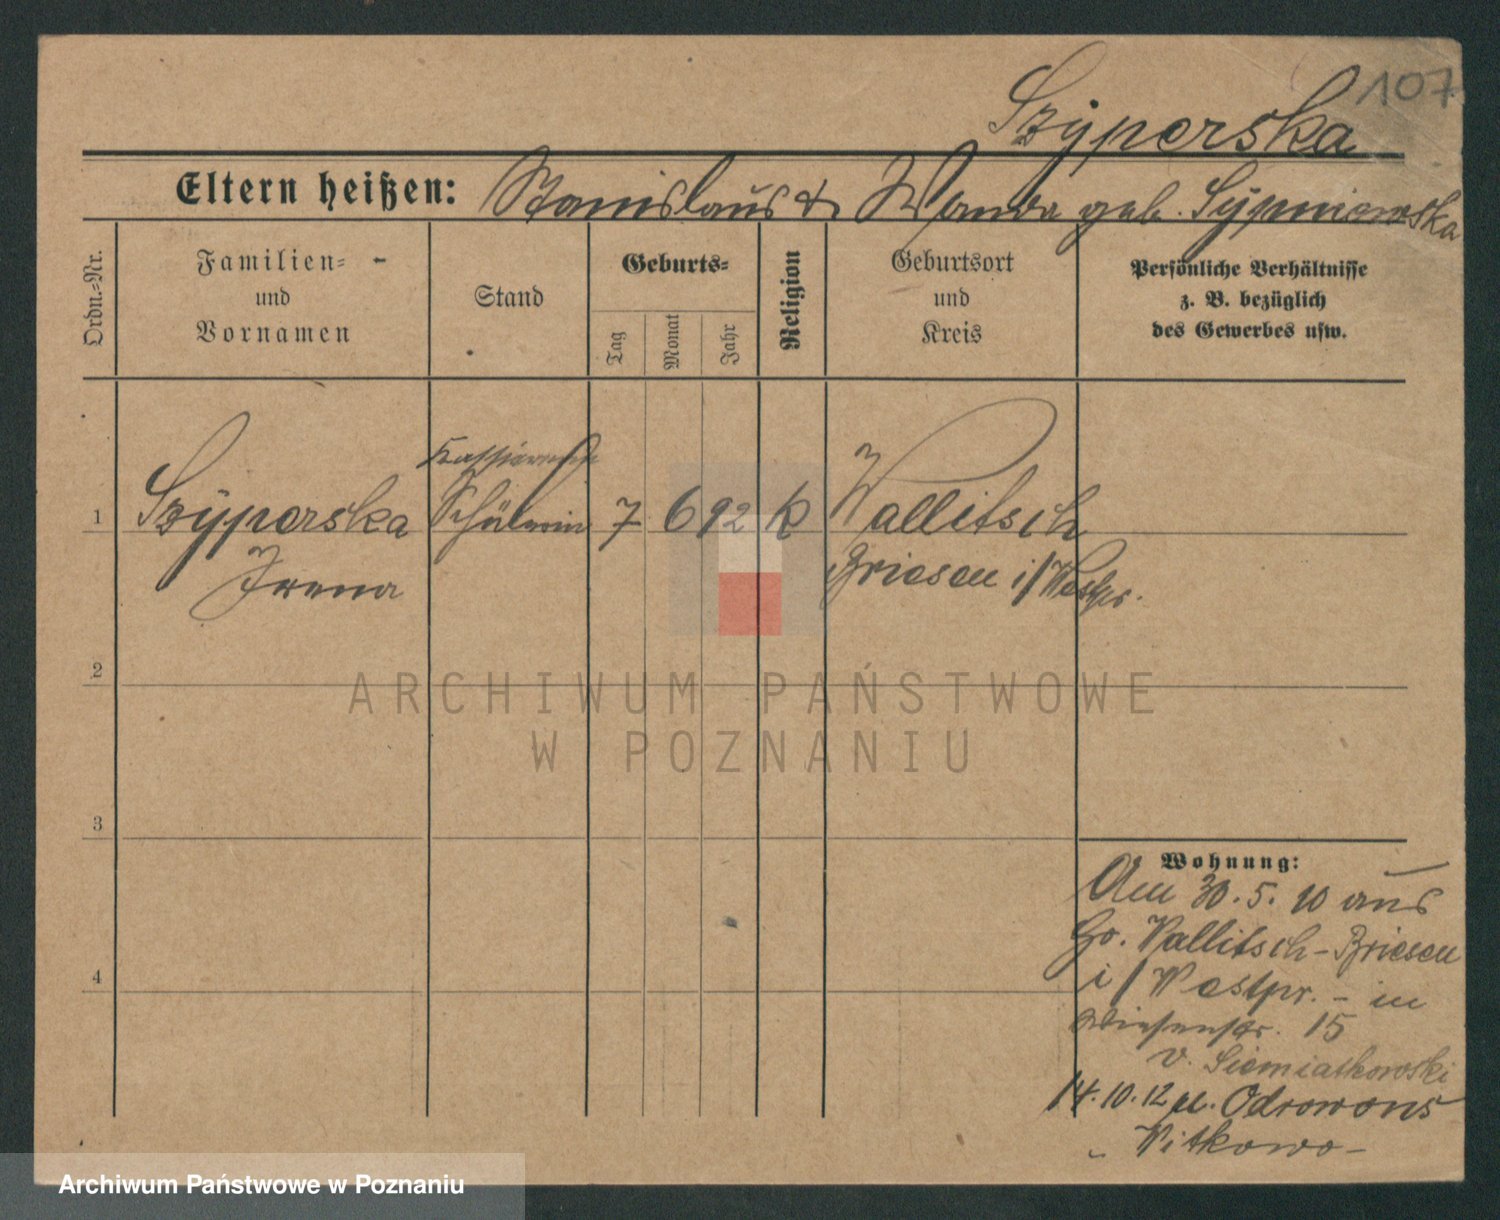 107
Szÿperska
Eltern heißen: Stanislaus & Wanda geb. Sÿpniewska
Ordn.-Nr.
Familien-
und
Vornamen
Stand
Geburts-
Tag
Monat
Jahr
Religion
Geburtsort
und
Kreis
Persönliche Verhältnisse
z. B. bezüglich
des Gewerbes usw.
1
Szÿperska
Irena
Schülerin
7
6
92
k
Wallitsch
Briesen i/Westpr.
2
3
4
Wohnung:
Am 30. 5. 10 aus
Gr. Wallitsch-Briesen
i/Westpr. - in
Wiesenstr. 15
v. Siemiatkowski
14.10.12 n. Odrowons
Witkowo-
ARCHIWUM PAŃSTWOWE
W POZNANIU
Archiwum Państwowe w Poznaniu